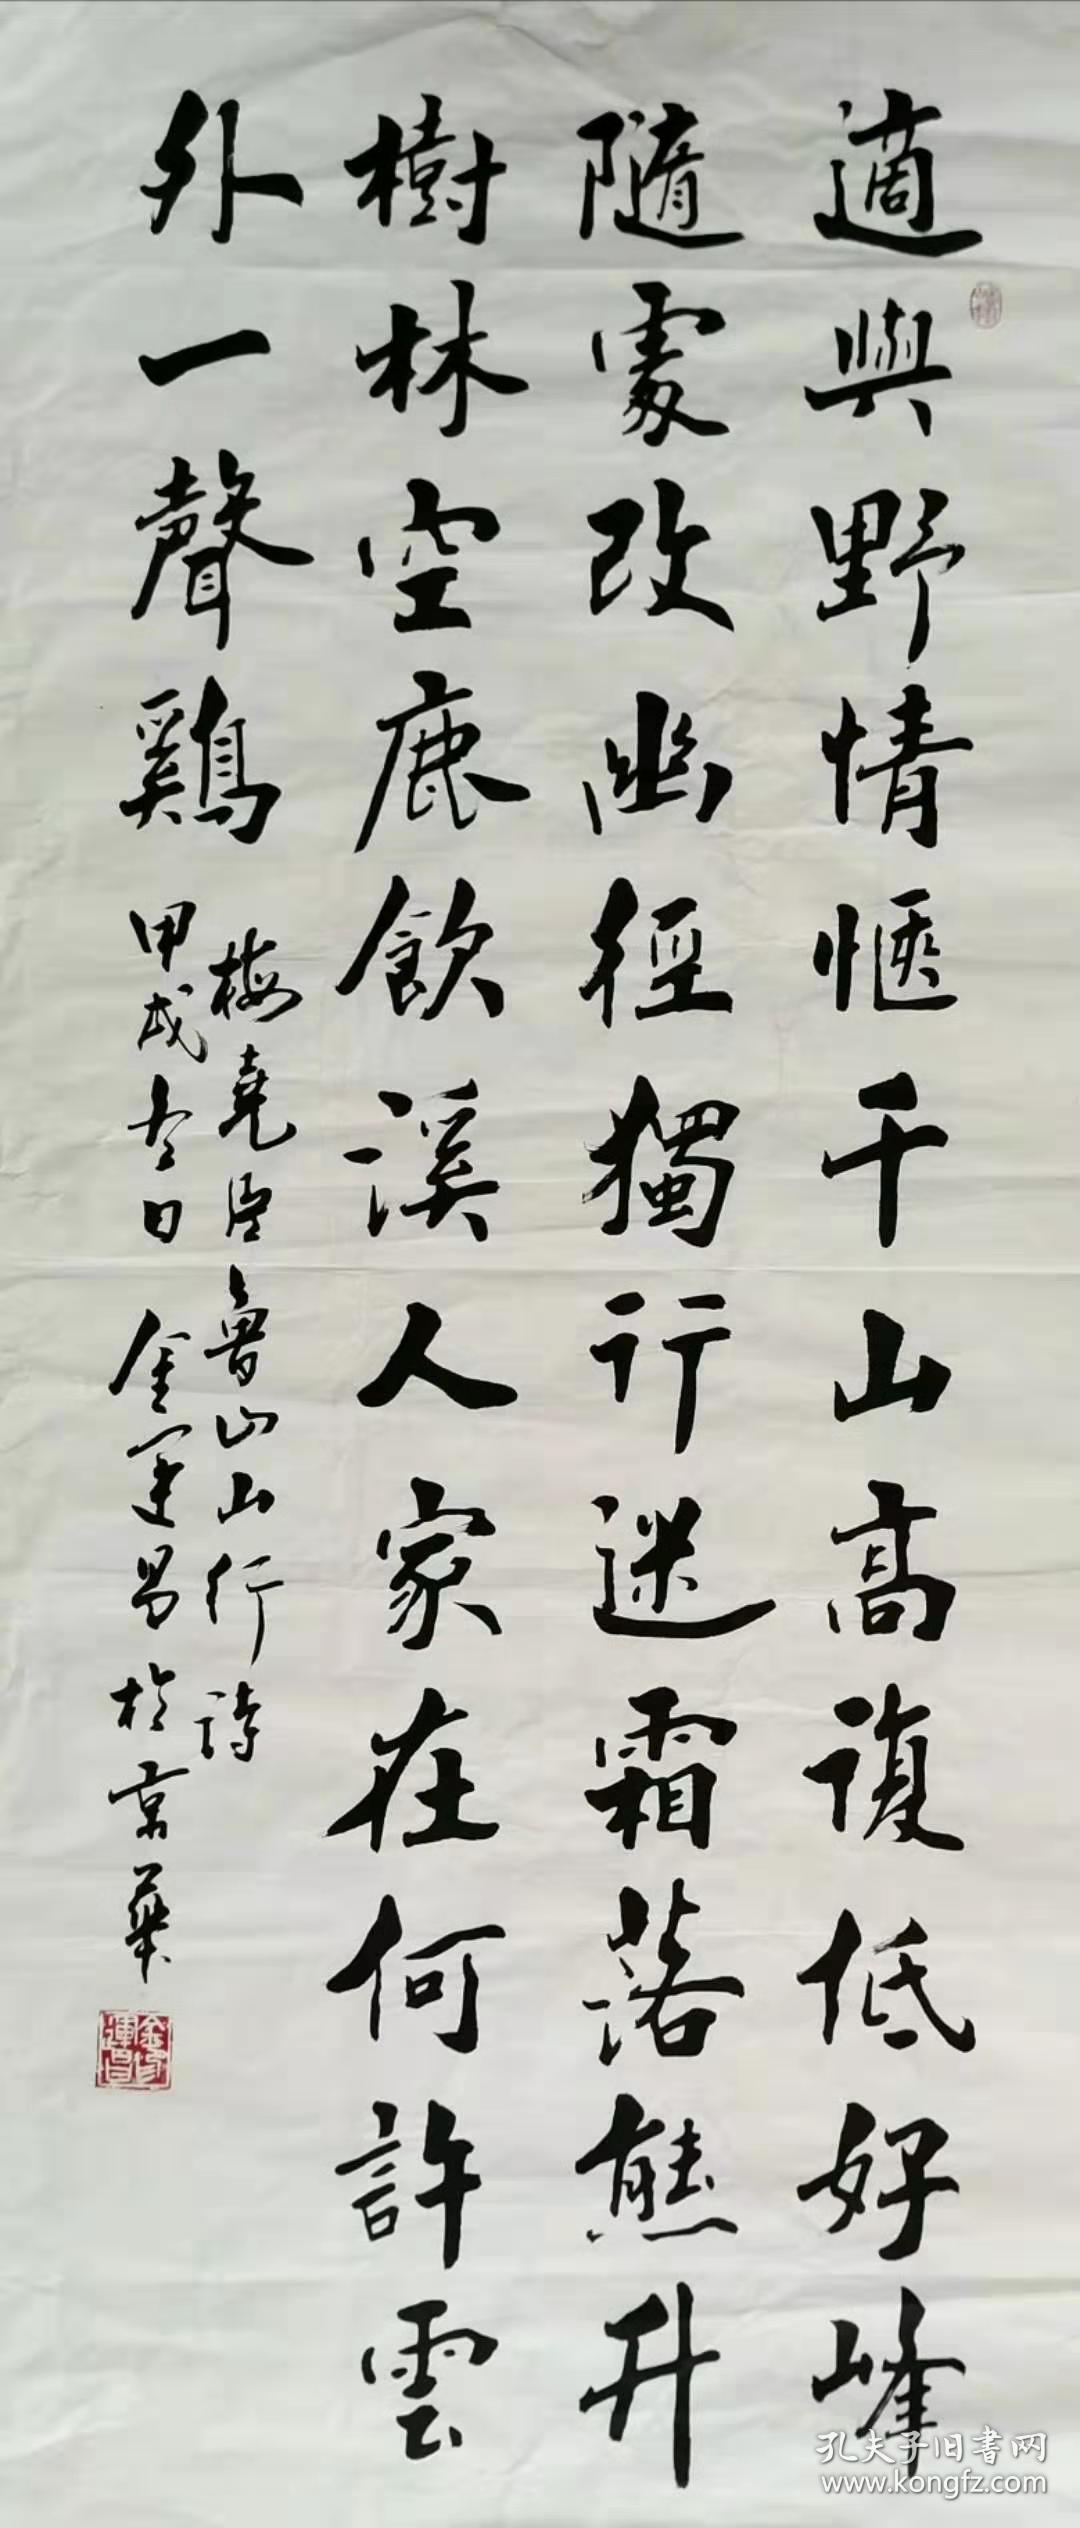 適與野情愜千山高復低好峰
隨處改幽徑獨行迷霜落熊升
樹林空鹿飲溪人家在何許雲
外一聲鷄
梅堯臣魯山山行詩
甲戌冬日金運昌於京華
孔夫子旧书网
www.kongfz.com